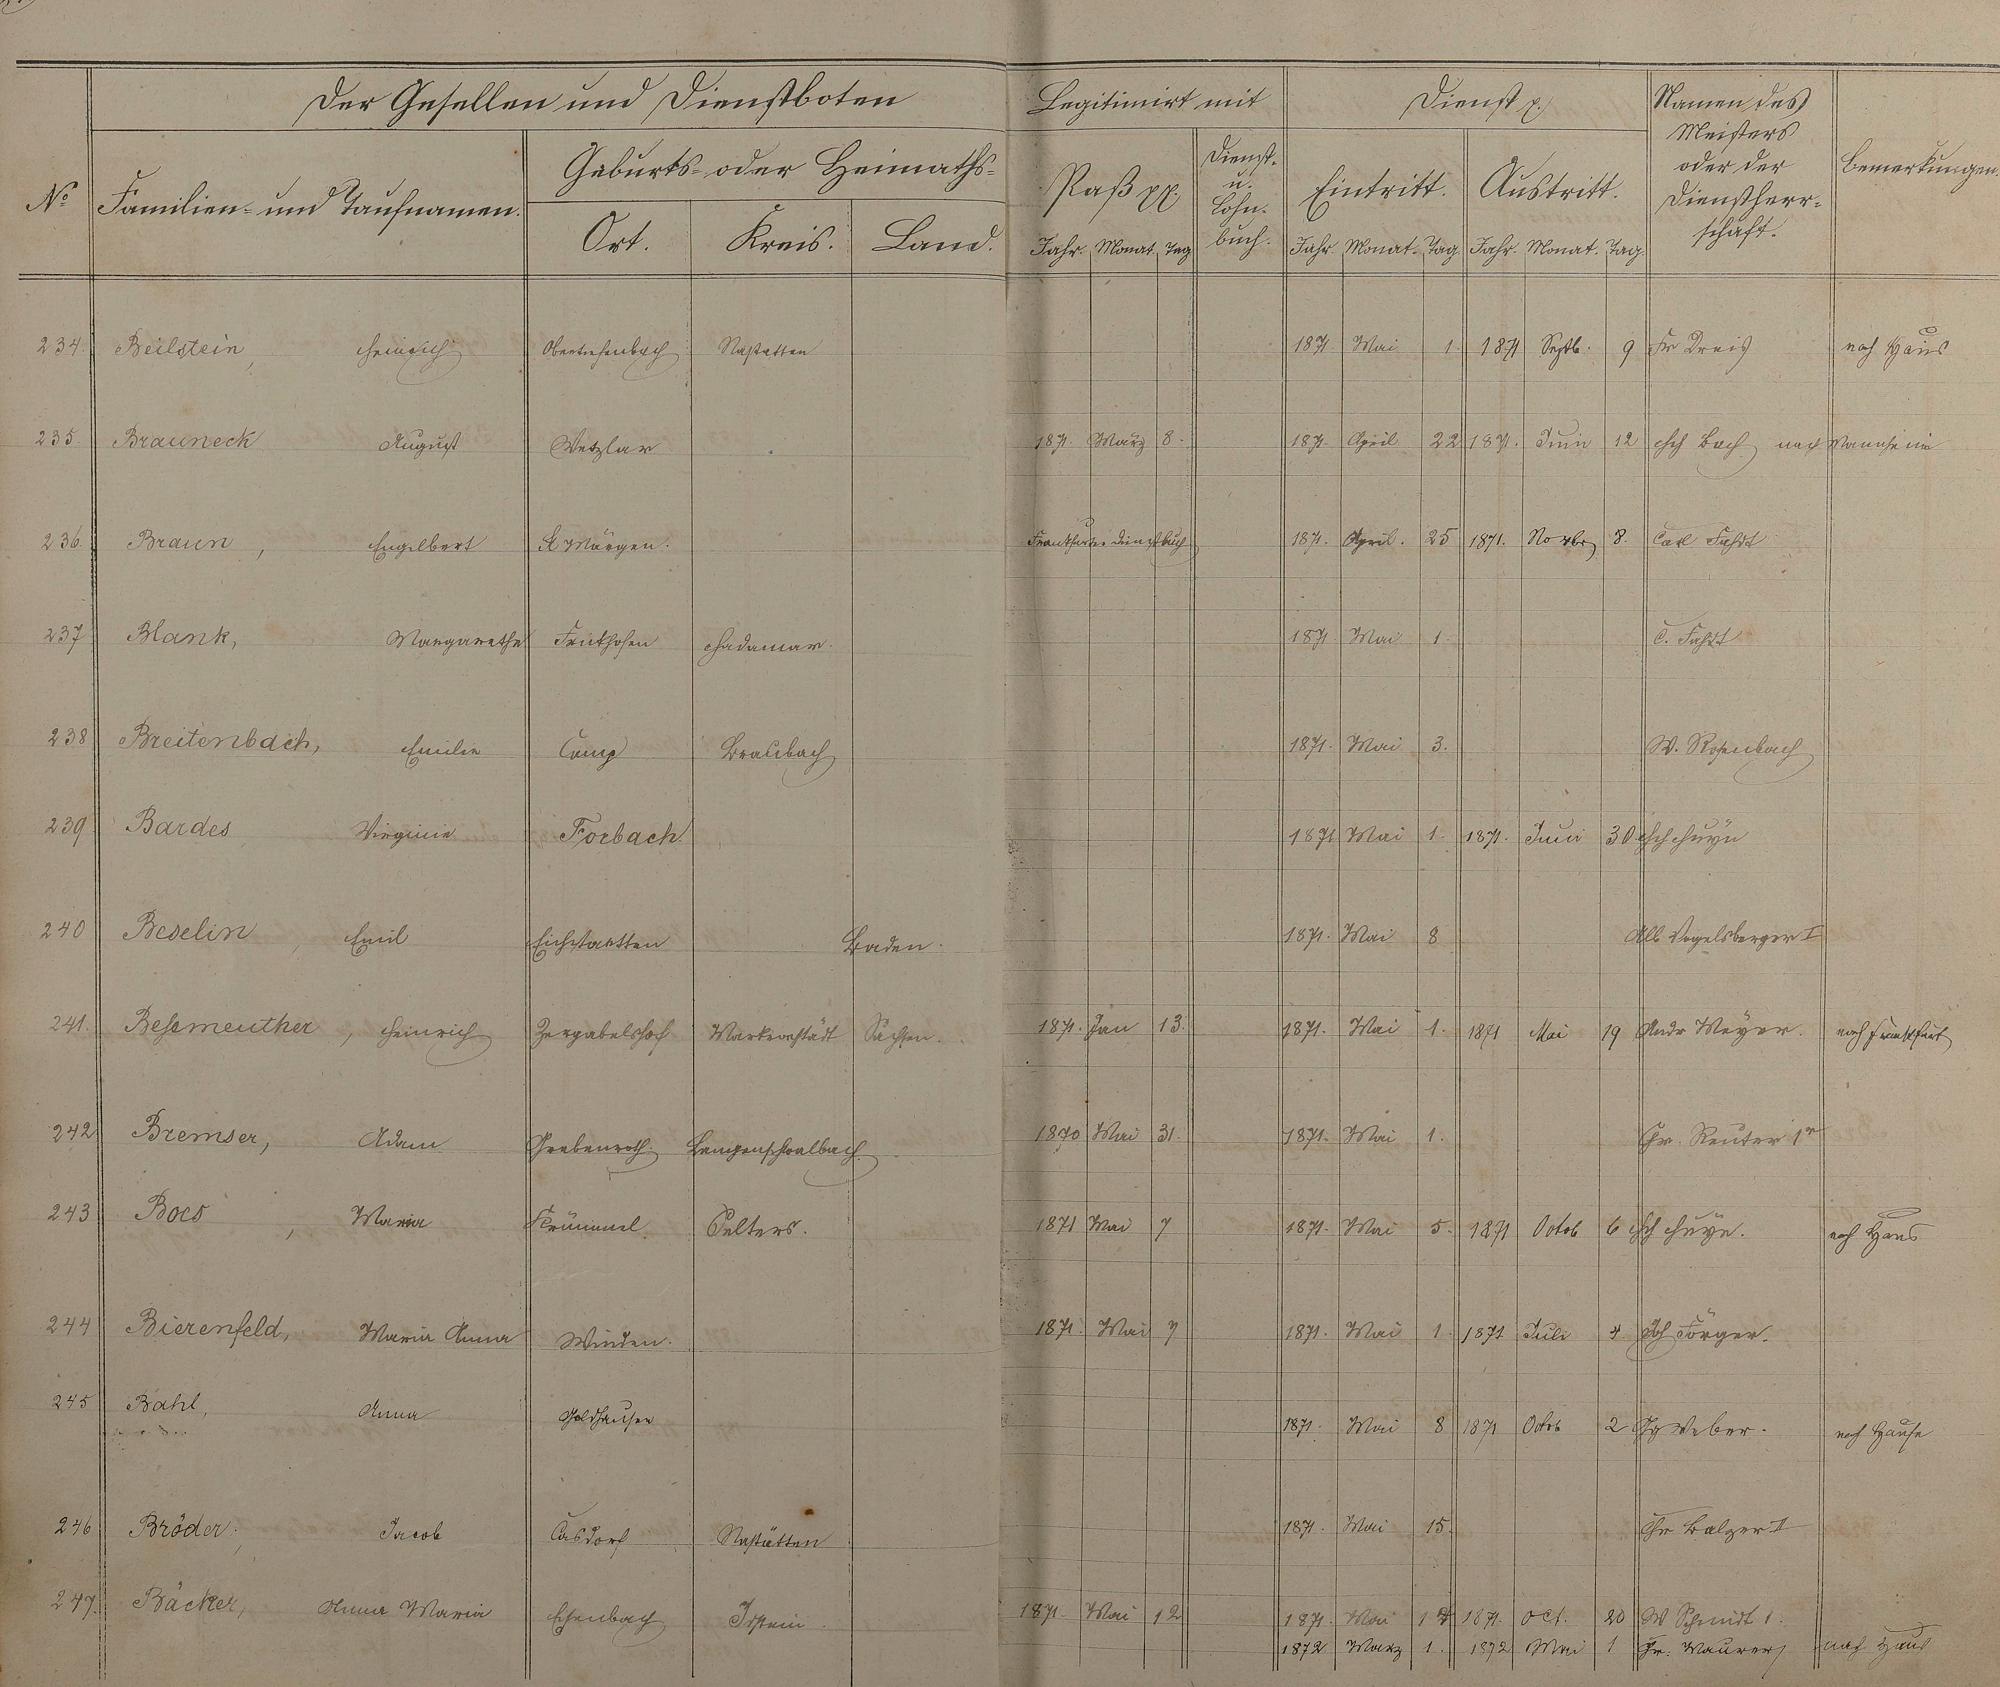 Der Gesellen und Dienstboten Legitimirt mit Dienst p. Namen des Meisters oder der Dienstherrschaft. Bemerkungen.
No Familien- und Taufnamen. Geburts- oder Heimaths- Paß pp. Dienst- u. Lohn-buch. Eintritt. Austritt.
Ort. Kreis. Land. Jahr. Monat. Tag Jahr. Monat. Tag Jahr. Monat. Tag.
234. Beilstein, Heinrich Nastatten 1871. Mai 1. 1871 Septb. 9 Fr Dreis nach Haus
235. Brauneck August Wetzlar 1871. März 8. 1871. April 22 1871. Juni 12 Hch Bach nach Mannheim
236. Braun, Engelbert St Märgen. Frankfurter Dienstbuch 1871. April. 25 1871. Novbr 8. Carl Fahdt
237 Blank, Margarethe Frickhofen Hadamar. 1871 Mai 1. C. Fahdt
238 Breitenbach, Emilie Camp Braubach 1871. Mai 3. W. Rosenbach
239 Bardes Virginie Forbach. 1871 Mai 1. 1871. Juni 30 Hch Huyn
240 Beselin, Emil Eichstaetten Baden. 1871. Mai 8 Alb Vogelsberger I
241. Bessmeuther, Heinrich Sachsen. 1871. Jan 13. 1871. Mai 1. 1871 Mai 19 Andr Meyer. nach Frankfurt
242 Bremser, Adam Grebenroth Langenschwalbach 1870 Mai 31. 1871. Mai 1. Chr. Reuter 1r
243 Bocs, Maria Krümmel Selters. 1871 Mai 7 1871. Mai 5. 1871 Octob 6 Hch Huyn. nach Haus
244 Bierenfeld, Maria Anna Winden. 1871. Mai 7 1871. Mai 1. 1871 Juli 4 Jörger.
245 Bahl, Anna Goldhausen 1871. Mai 8 1871 Octob 2 Gg Weber. nach Hause
246 Bröder, Jacob Casdorf Nastätten 1871. Mai 15. Chr Balzer I
247. Bäcker, Anna Maria Eschenbach Idstein. 1871. Mai 12 1871. Mai 1871. Oct. 20 W Schmidt 1.
1872 Marz 1. 1872 Mai 1 Fr. Maurer nach Haus